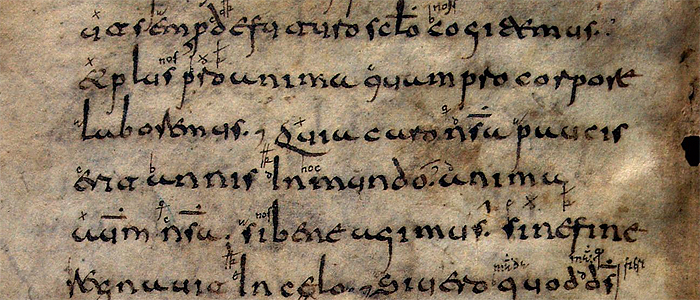 ac semp de futuro sclo cogitemus.
Et plus pro anima quam pro corpore
laboremus. Quia caro nsa paucis
erit annis In mundo. anima
aum nsa. si bene agimus. sine fine
regnavit In celo. Si vero quod ds